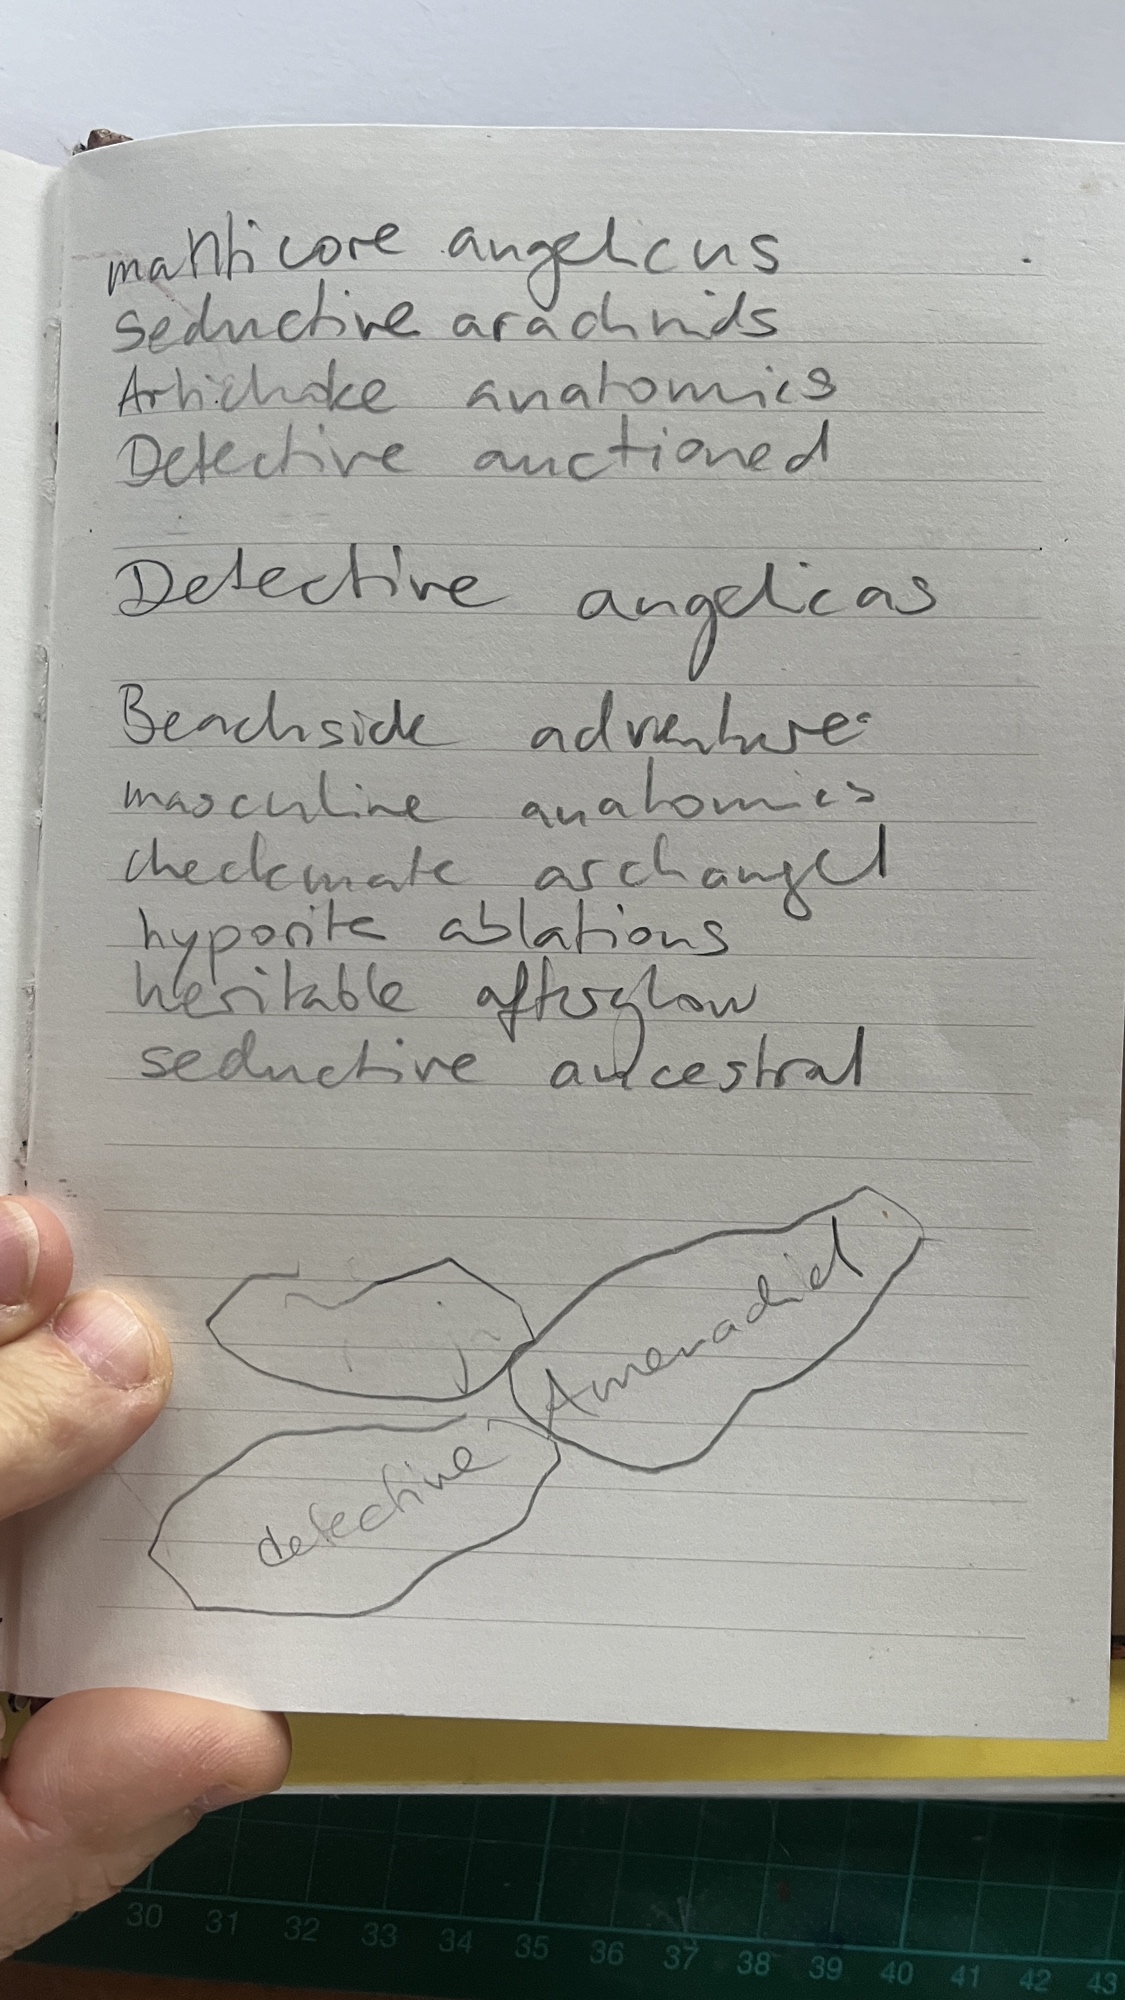 manticore angelicus
seductive arachnids
Artichoke anatomics
Detective auctioned
Detective angelicas
Beachside adventure
masculine anatomics
checkmate archangel
hyporite ablations
heritable afterglow
seductive ancestral
Amenadiel
detective
30 31 32 33 34 35 36 37 38 39 40 41 42 43